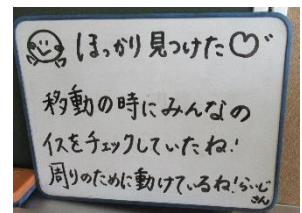 ほっかり見つけた♡
移動の時にみんなの
イスをチェックしていたね!
周りのために動けているね!らいじ
さん